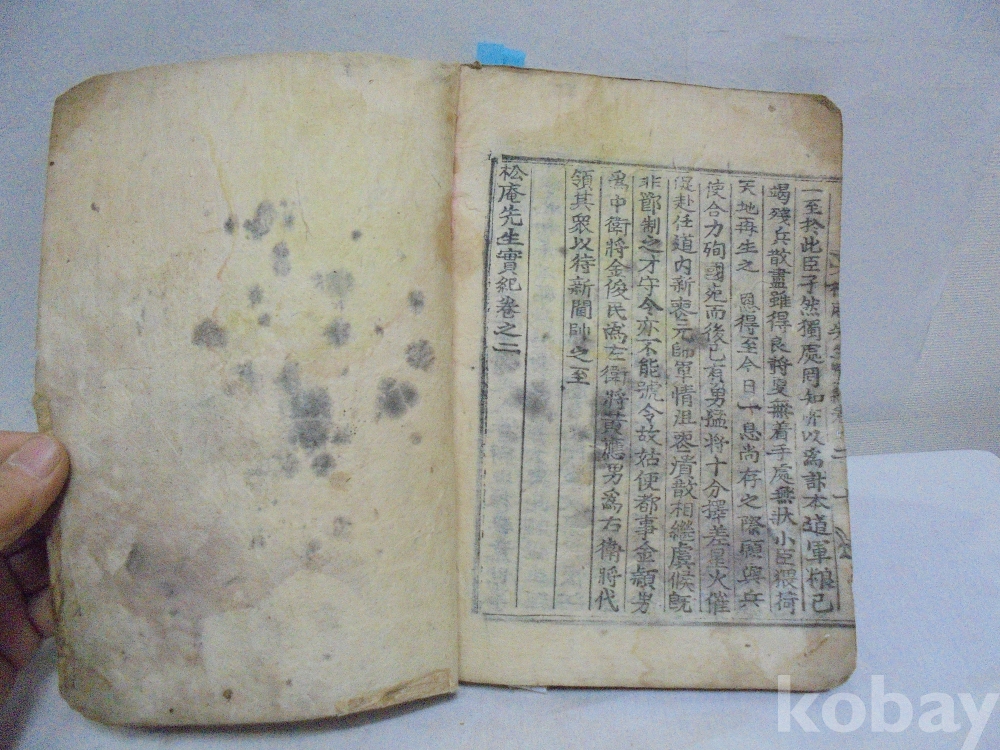 一至於此臣孑然獨處罔知所以爲計本道軍粮已
竭殘兵散盡雖得良將更無着手處無狀小臣猥荷
天地再生之 恩得至今日一息尚存之際願與兵
使合力殉國死而後已有勇猛將十分擇差星火催
促赴任道內新喪元帥軍情沮喪潰散相繼虞候旣
非節制之才守令亦不能號令故姑使都事金穎男
爲中衛將金俊民爲左衛將黃應男爲右衛將代
領其衆以待新閫帥之至
松庵先生實紀卷之二
kobay